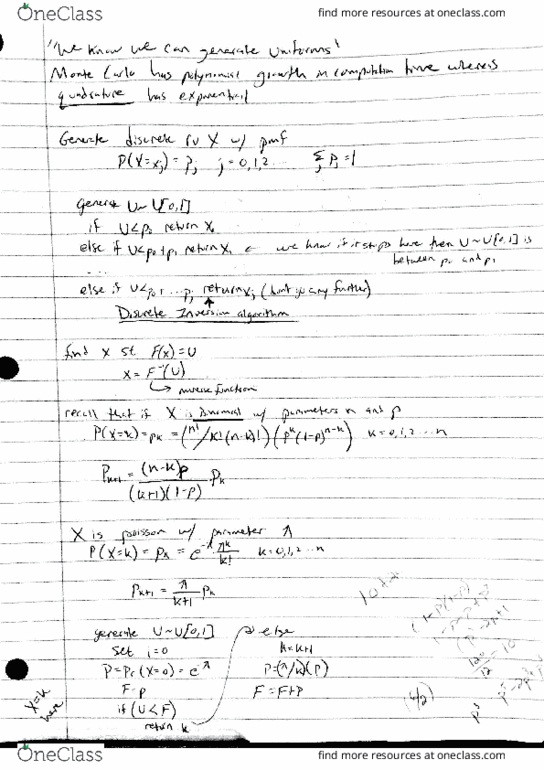 OneClass
find more resources at oneclass.com
"We know we can generate uniforms"
Monte Carlo has polynomial growth in computation time whereis
quadrature has exponential
Generate discrete rv X w/ pmf
P(X=xj) = Pj j=0,1,2... Σj Pj=1
generate U~U[0,1]
if U<p0 return x0
else if U<p0+p1 return x1 ← we know if it stops here then U~U[0,1] is
between p0 and p1
...
else if U<p0+...pj return xj (don't go any further)
Discrete Inversion algorithm
find x st F(x)=U
x = F⁻¹(U)
↳ inverse function
recall that if X is binomial w/ parameters n and p
P(X=k) = pk = (n!/k!(n-k)!)(p^k(1-p)^(n-k)) k=0,1,2...n
Pk+1 = (n-k)p/(k+1)(1-p) Pk
X is poisson w/ parameter λ
P(X=k) = pk = e^-λ λ^k/k! k=0,1,2...n
Pk+1 = λ/k+1 Pk
generate U~U[0,1]
set i=0
P=Pr(X=0)=e^-λ
F=p
if (U<F)
return k
X=k
here
else
k=k+1
P=(λ/k)(P)
F=F+P
(4/2)
OneClass
find more resources at oneclass.com